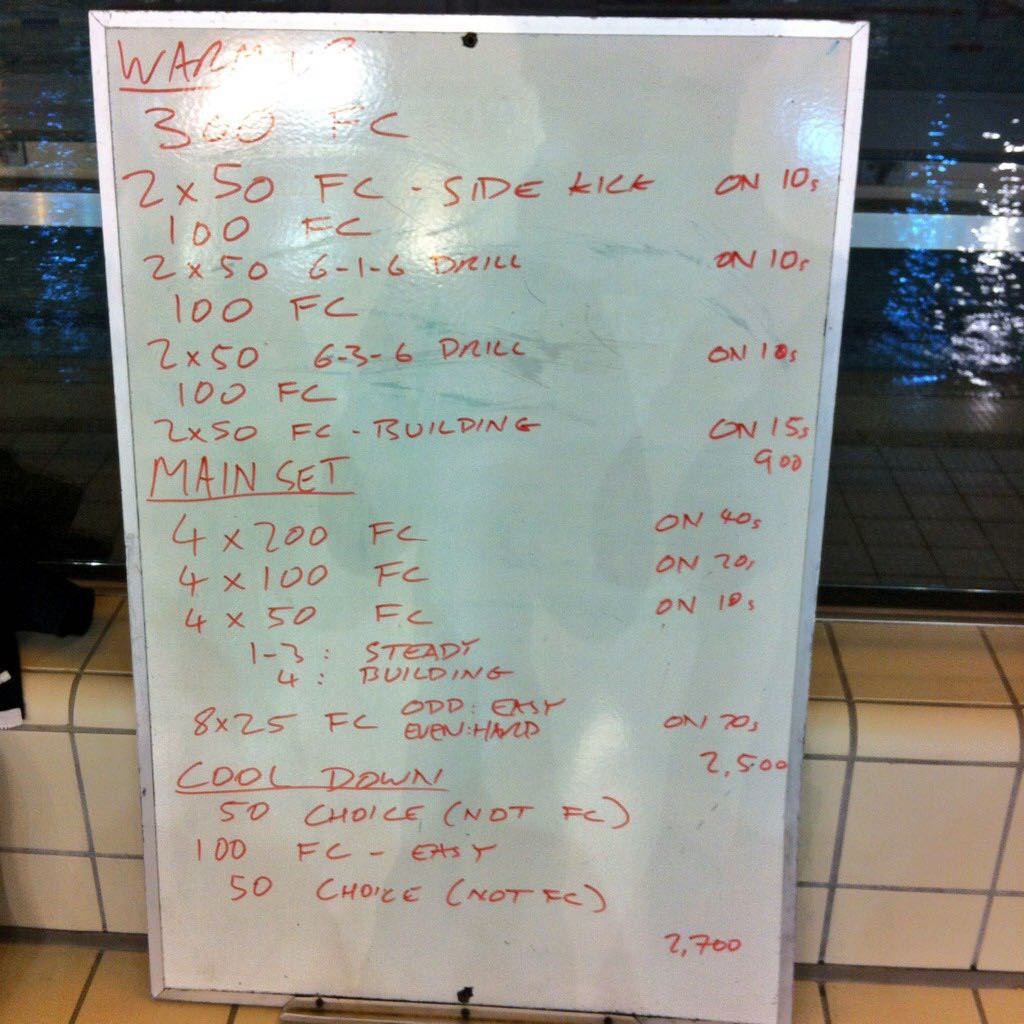 WARM UP
300 FC
2 x 50 FC - SIDE KICK ON 10s
100 FC
2 x 50 6-1-6 DRILL ON 10s
100 FC
2 x 50 6-3-6 DRILL ON 10s
100 FC
2x50 FC - BUILDING ON 15s
900
MAIN SET
4 x 200 FC ON 40s
4 x 100 FC ON 20s
4 x 50 FC ON 10s
1-3 : STEADY
4 : BUILDING
8x25 FC ODD: EASY EVEN: HARD ON 20s
2,500
COOL DOWN
50 CHOICE (NOT FC)
100 FC - EASY
50 CHOICE (NOT FC)
2,700